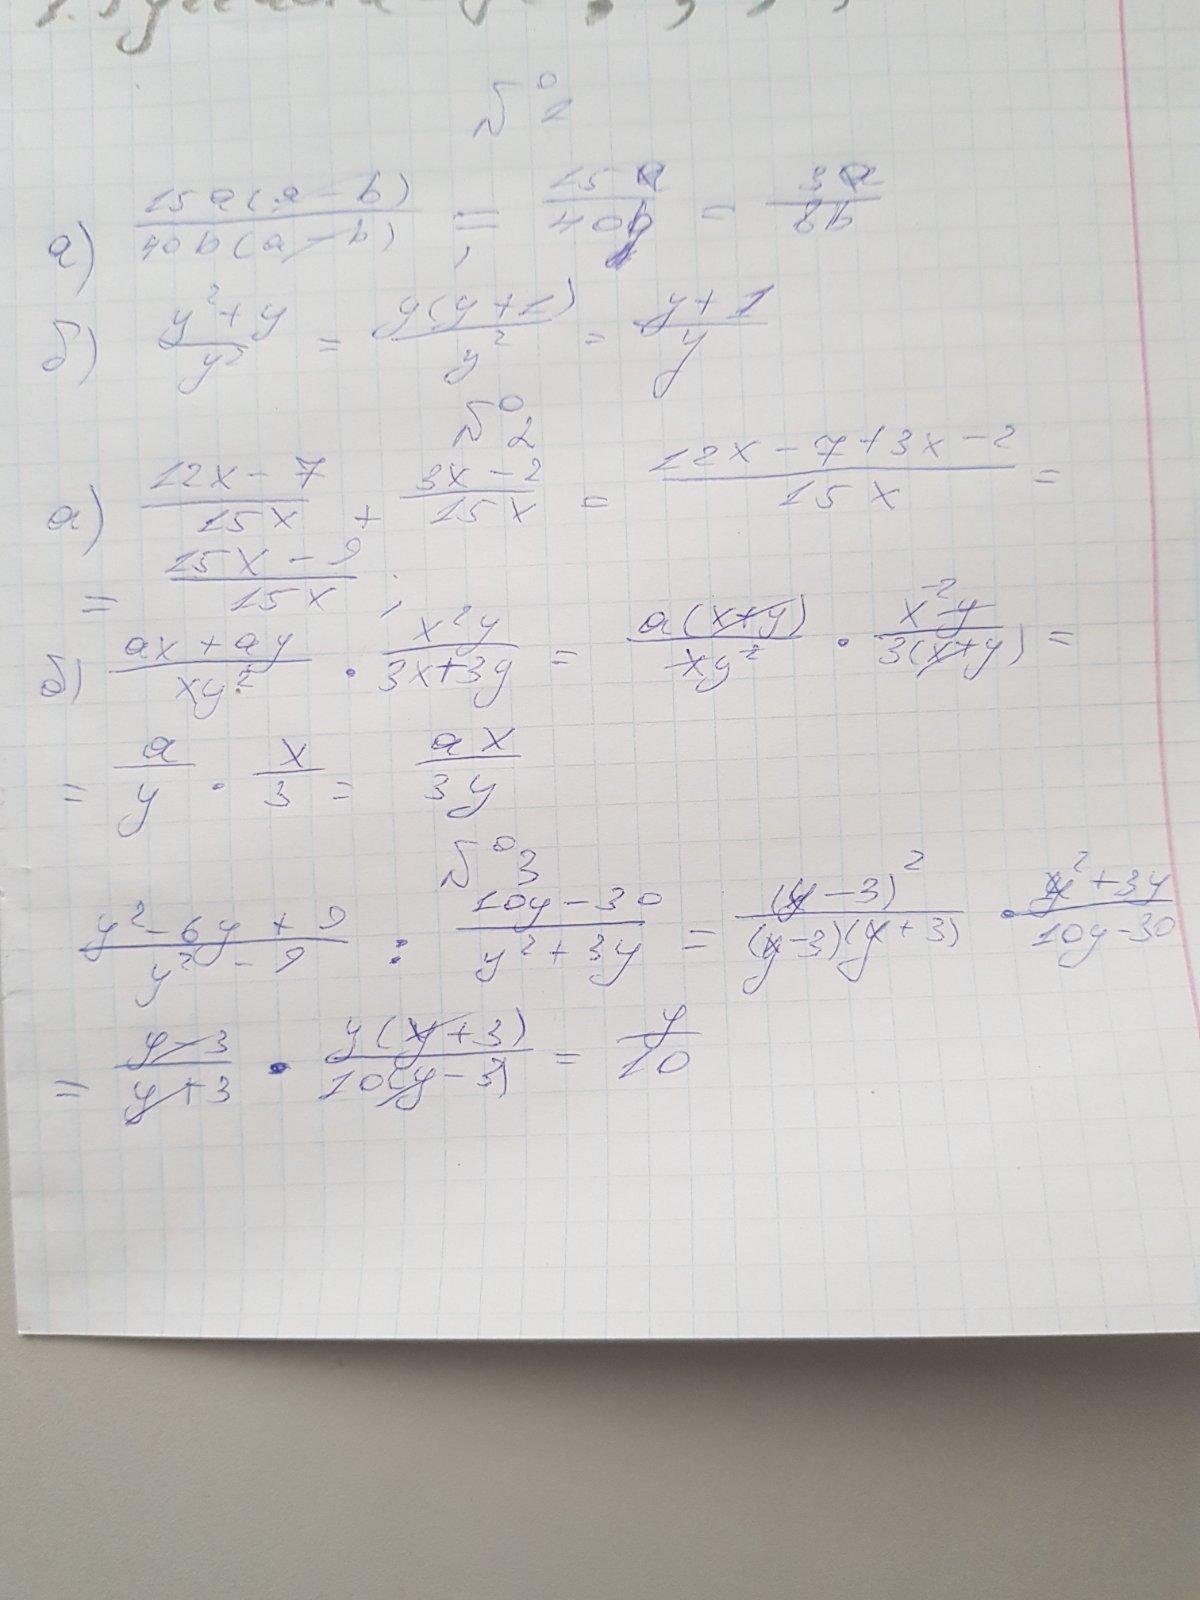 №1
а) 15a(a-b)/40b(a-b) = 15a/40b = 3a/8b
б) y²+y/y² = y(y+1)/y² = y+1/y
№2
а) 12x-7/15x + 3x-2/15x = 12x-7+3x-2/15x =
= 15x-9/15x ;
б) ax+ay/xy² · x²y/3x+3y = a(x+y)/xy² · x²y/3(x+y) =
= a/y · x/3 = ax/3y
№3
y²-6y+9/y²-9 : 10y-30/y²+3y = (y-3)²/(y-3)(y+3) · y²+3y/10y-30
= y-3/y+3 · y(y+3)/10(y-3) = y/10